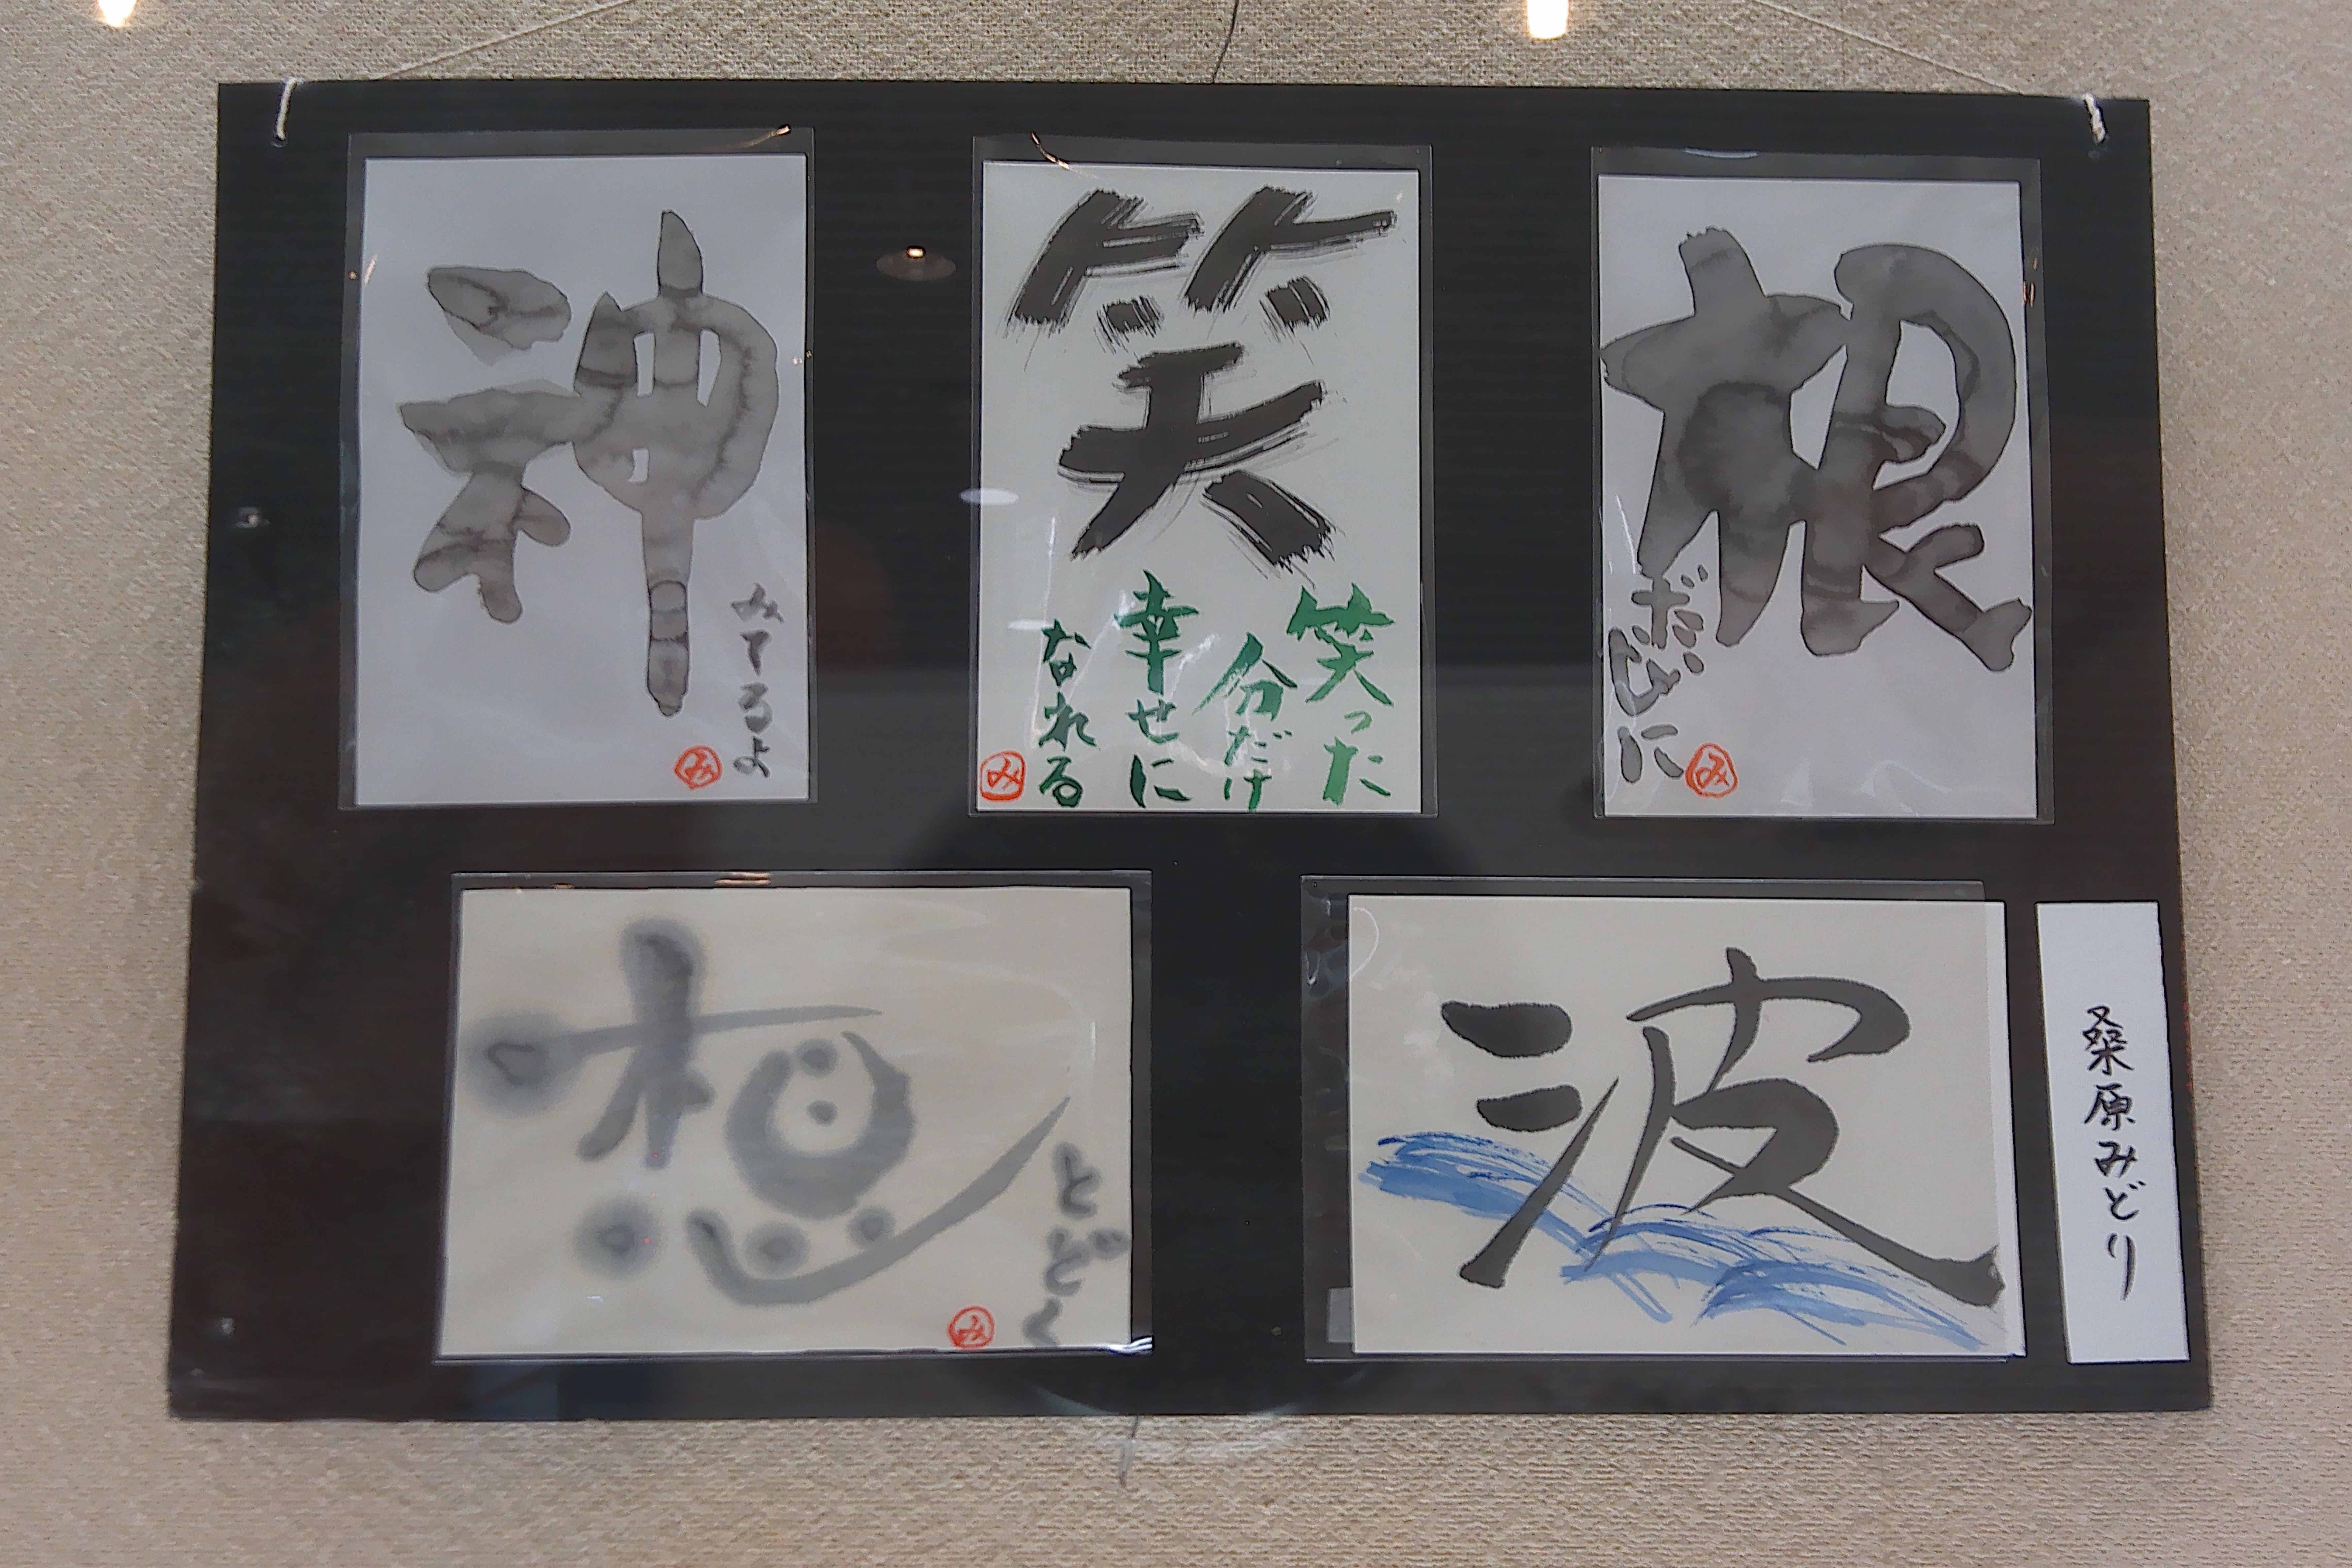 神
みてるよ
み
笑
笑った
分だけ
幸せに
なれる
み
根
だいじに
み
想
とどく
み
波
桑原みどり